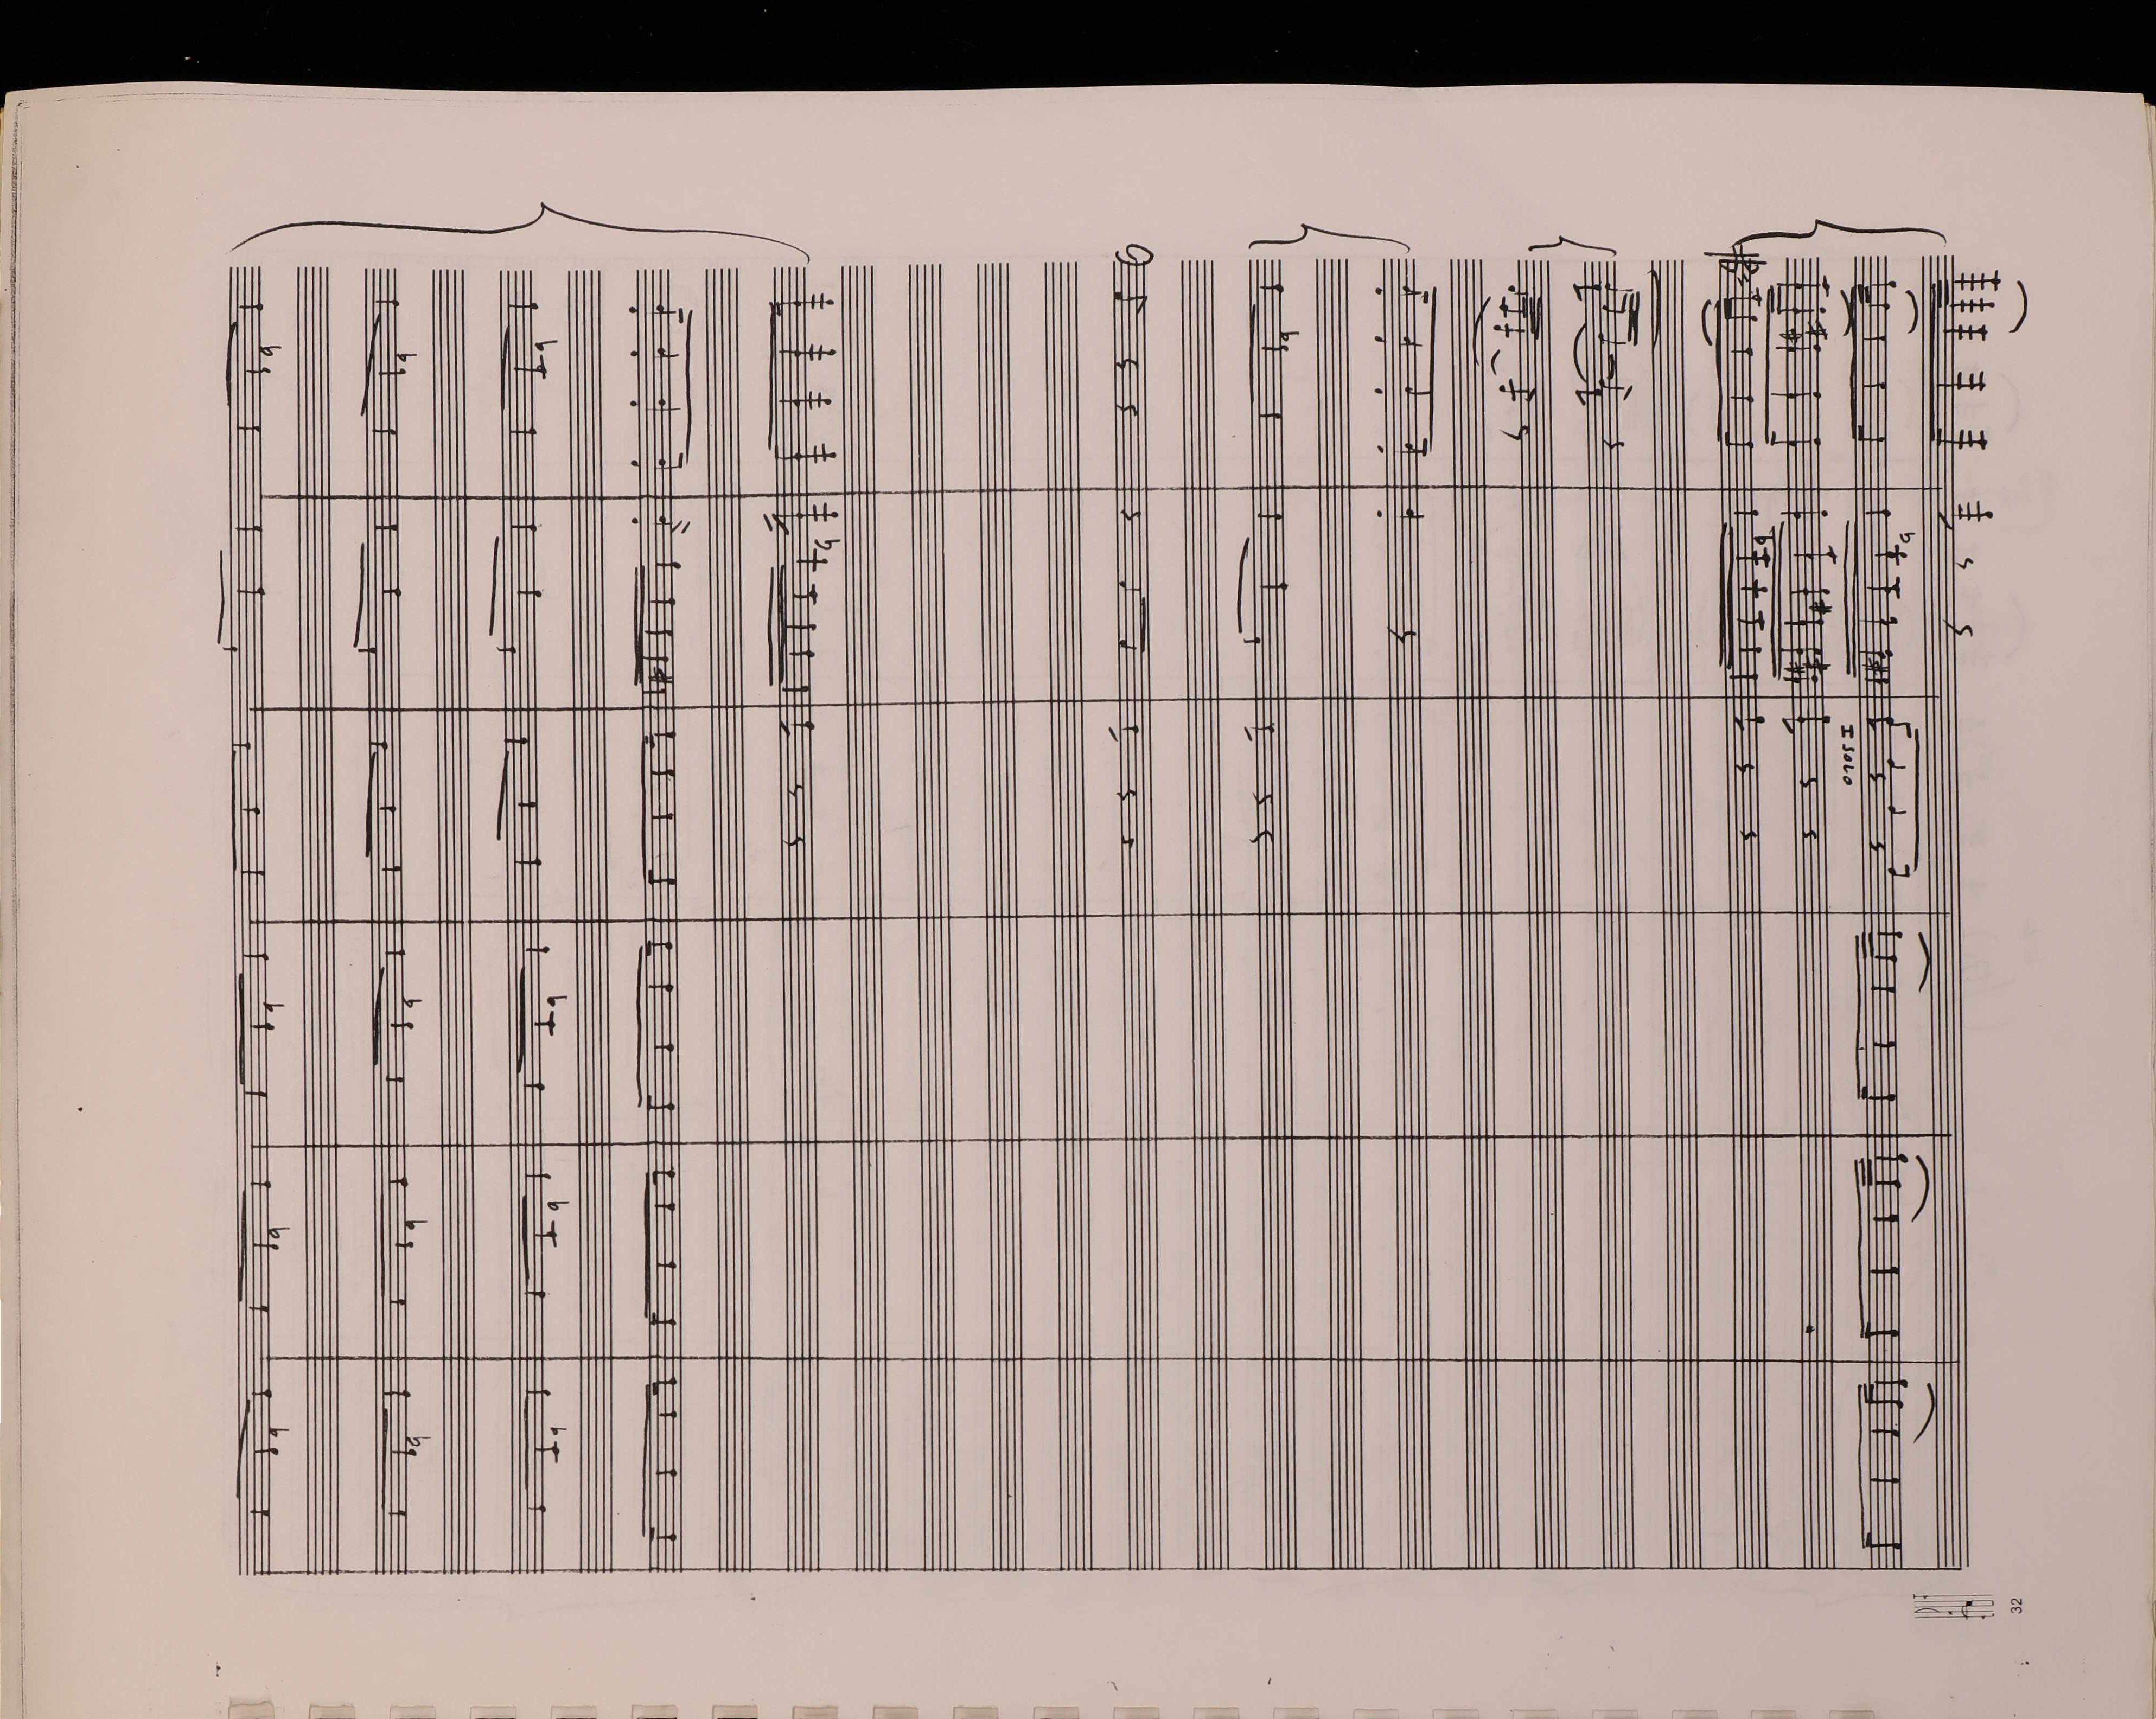 I SOLO
32